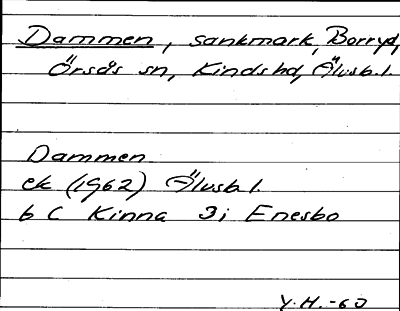 Dammen, sankmark, Borryd,
Örsås sn, Kinds hd, Älvsb. l.
Dammen
ek (1962) Älvsb l.
6 C Kinna 3i Enesbo
Y.H. -60